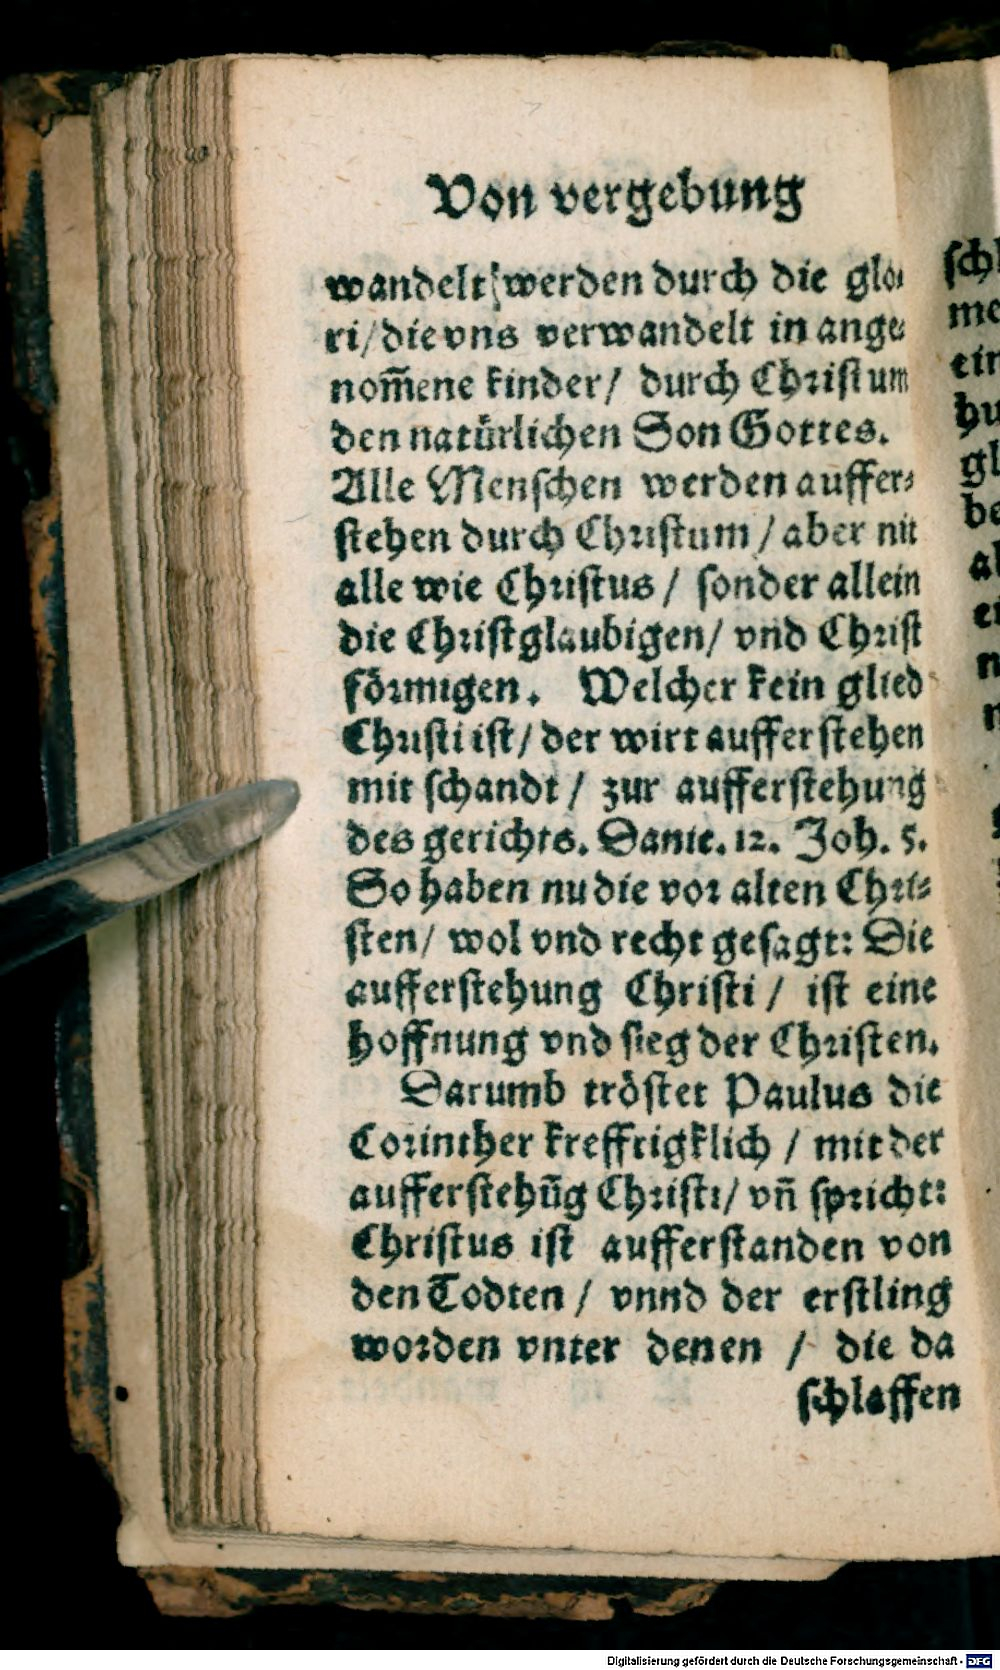 Von vergebung
wandelt werden durch die glo-
ri/ die vns verwandelt in ange-
nom̃ene kinder/ durch Christum
den natürlichen Son Gottes.
Alle Menschen werden auffer-
stehen durch Christum / aber nit
alle wie Christus / sonder allein
die Christglaubigen/ vnd Christ
förmigen. Welcher kein glied
Christi ist/ der wirt aufferstehen
mit schandt / zur aufferstehung
des gerichts. Danie. 12. Joh. 5.
So haben nu die vor alten Chri-
sten/ wol vnd recht gesagt: Die
aufferstehung Christi / ist eine
hoffnung vnd sieg der Christen.
Darumb tröstet Paulus die
Corinther krefftigklich / mit der
aufferstehūg Christi/ vñ spricht:
Christus ist aufferstanden von
den Todten / vnnd der erstling
worden vnter denen / die da
schlaffen
schl
me
ein
hu
gl
be
Digitalisierung gefördert durch die Deutsche Forschungsgemeinschaft - DFG